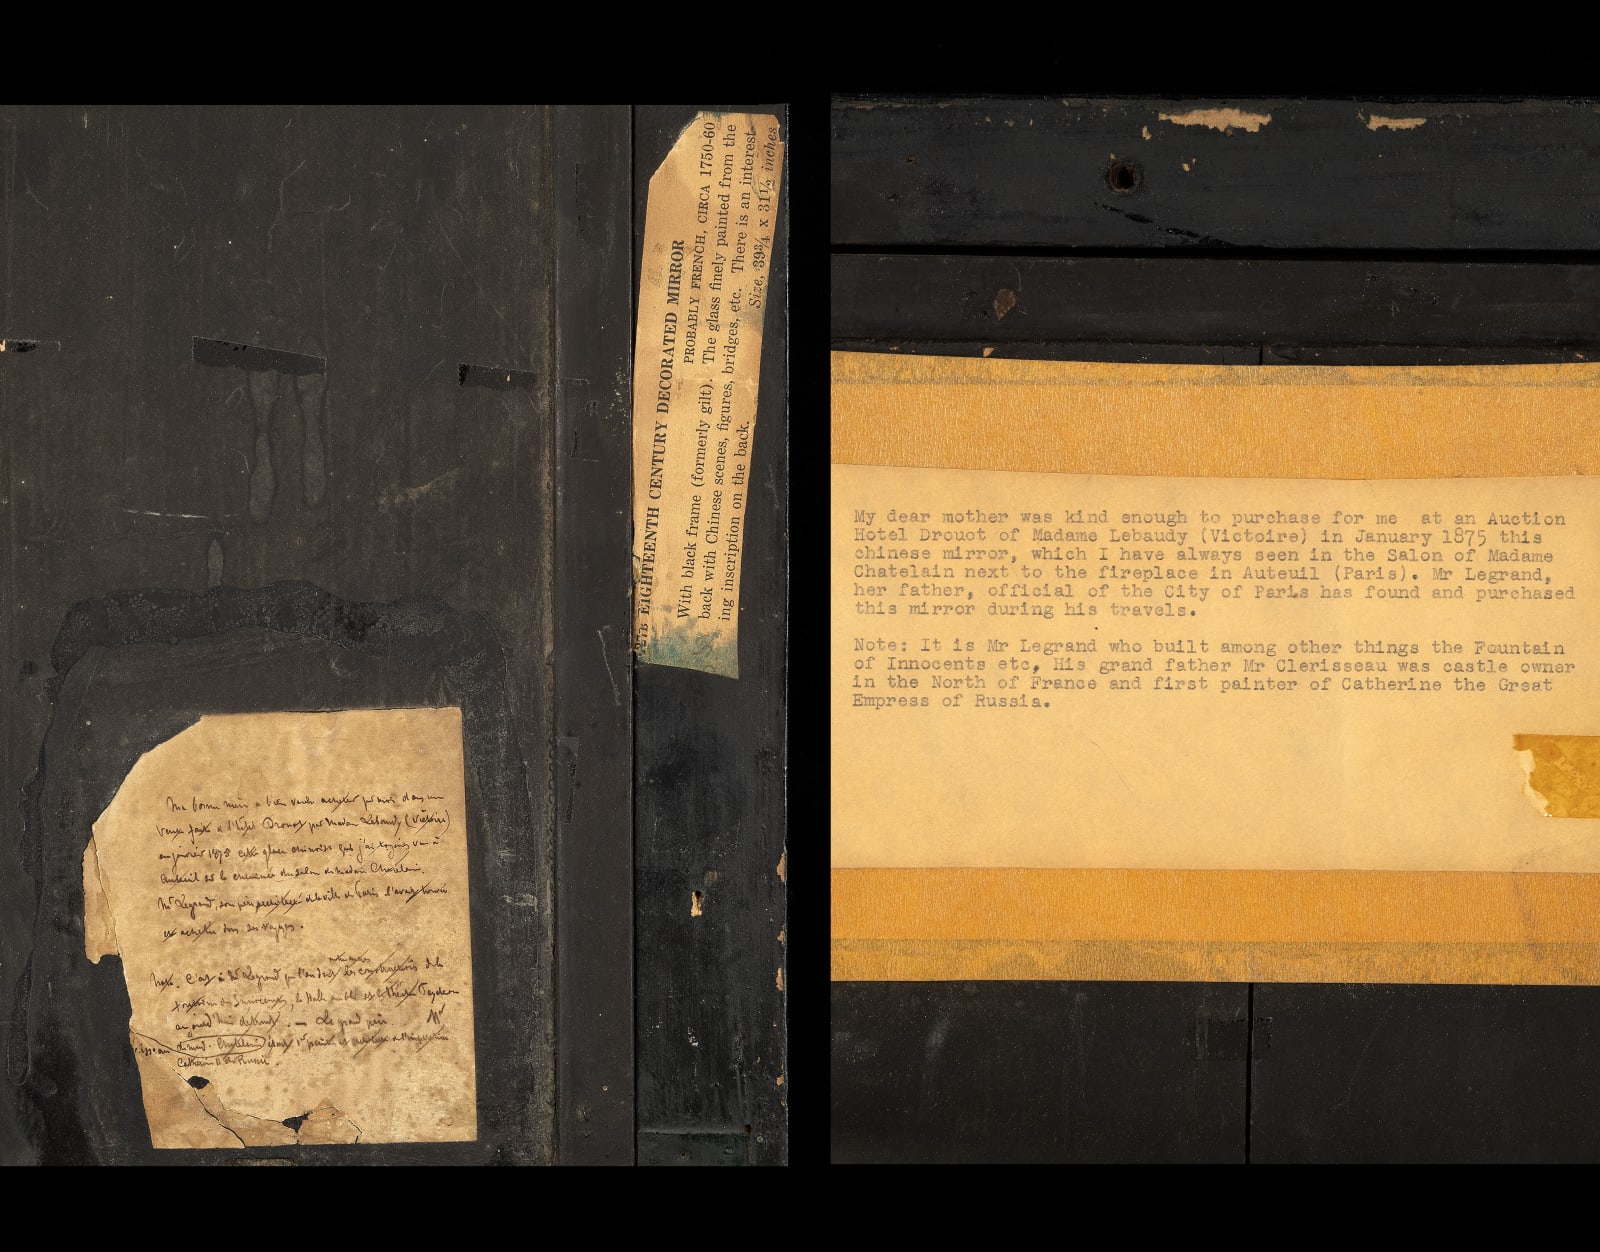 EIGHTEENTH CENTURY DECORATED MIRROR
PROBABLY FRENCH, CIRCA 1750-60
With black frame (formerly gilt). The glass finely painted from the
back with Chinese scenes, figures, bridges, etc. There is an interest-
ing inscription on the back.
Size, 39¾ x 31½ inches
Ma bonne mère a bien voulu acheter pour moi dans une
vente faite à l'hôtel Drouot par Madame Lebaudy (Victoire)
en janvier 1875 cette glace chinoise que j'ai toujours vue à
Auteuil sur la cheminée du salon de madame Chatelain.
Mr Legrand, son père de la ville de Paris l'avait trouvée
et achetée dans ses voyages.
Note. C'est à Mr Legrand que l'on doit les constructions de la
fontaine des Innocents, la Halle au blé et le théâtre Feydeau
aujourd'hui détruit. — Le grand père Mr
était 1er peintre et de l'impératrice
Catherine II de Russie.
My dear mother was kind enough to purchase for me at an Auction
Hotel Drouot of Madame Lebaudy (Victoire) in January 1875 this
chinese mirror, which I have always seen in the Salon of Madame
Chatelain next to the fireplace in Auteuil (Paris). Mr Legrand,
her father, official of the City of Paris has found and purchased
this mirror during his travels.
Note: It is Mr Legrand who built among other things the Fountain
of Innocents etc, His grand father Mr Clerisseau was castle owner
in the North of France and first painter of Catherine the Great
Empress of Russia.